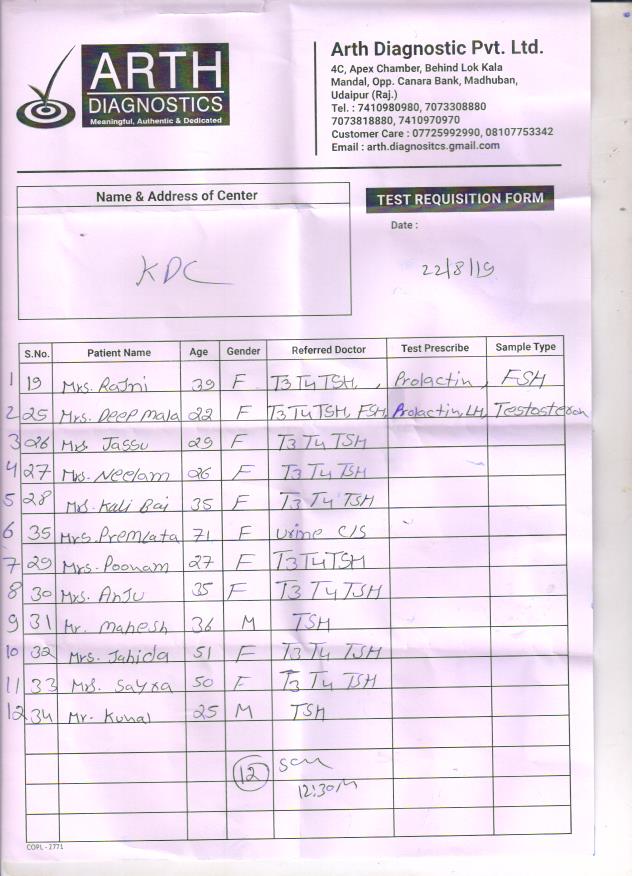 ARTH
DIAGNOSTICS
Meaningful, Authentic & Dedicated
Arth Diagnostic Pvt. Ltd.
4C, Apex Chamber, Behind Lok Kala
Mandal, Opp. Canara Bank, Madhuban,
Udaipur (Raj.)
Tel. : 7410980980, 7073308880
7073818880, 7410970970
Customer Care : 07725992990, 08107753342
Email : arth.diagnositcs.gmail.com
Name & Address of Center
KDC
TEST REQUISITION FORM
Date :
22/8/19
S.No. Patient Name Age Gender Referred Doctor Test Prescribe Sample Type
1 19 Mrs. Rajni 39 F T3 T4 TSH, Prolactin, FSH
2 25 Mrs. Deep mala 22 F T3 T4 TSH, FSH, Prolactin, LH, Testosteron
3 26 Mrs. Jassu 29 F T3 T4 TSH
4 27 Mrs. Neelam 26 F T3 T4 TSH
5 28 Mrs. Kali Bai 35 F T3 T4 TSH
6 35 Mrs. Premlata 71 F Urine C/S
7 29 Mrs. Poonam 27 F T3 T4 TSH
8 30 Mrs. Anju 35 F T3 T4 TSH
9 31 Mr. Mahesh 36 M TSH
10 32 Mrs. Jahida 51 F T3 T4 TSH
11 33 Mrs. Sayra 50 F T3 T4 TSH
12 34 Mr. Kunal 25 M TSH
12
12:30
COPL - 2771